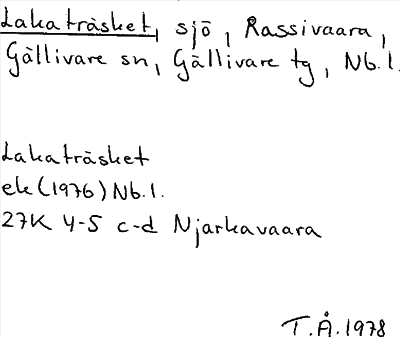 Lakaträsket, sjö, Rassivaara,
Gällivare sn, Gällivare tg, Nb.l.
Lakaträsket
ek (1976) Nb.l.
27K 4-5 c-d Njarkavaara
T.Å. 1978